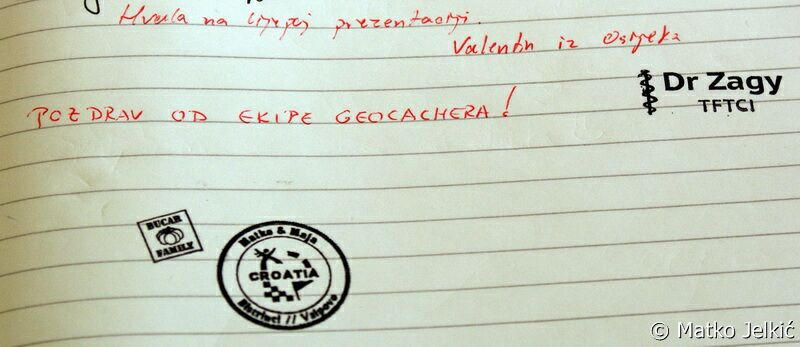 Hvala na lijepoj prezentaciji.
Valentin iz Osijeka
Dr Zagy
TFTCI
POZDRAV OD EKIPE GEOCACHERA!
BUCAR
FAMILY
Matko & Maja
CROATIA
Bistrinci // Valpovo
© Matko Jelkić